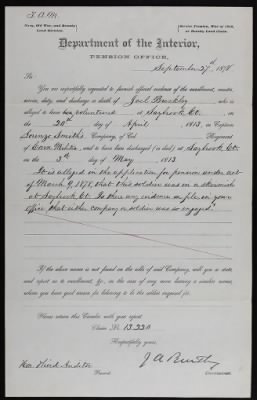 Navy, Old War, and Bounty
Land Division.
Service Pension, War of 1812,
or Bounty Land Claim.
Department of the Interior,
PENSION OFFICE,
September 27th, 1878
To
You are respectfully requested to furnish official evidence of the enrollment, muster,
service, duty, and discharge or death of Joel who is
alleged to have volunteered at Saybrook Ct. on
the 20th day of April 1813, in Captain
Smith's Company, of Col. Regiment
of Conn Militia and to have been discharged (or died) at Saybrook Ct.
on the 5th day of May, 1813
It is alleged in the application for pension under act
of March 9, 1878, that this soldier was in a skirmish
at Saybrook Ct. Is there any evidence on file in your
office, that either company or soldier was so engaged?
If the above name is not found on the rolls of said Company, will you so state,
and report as to enrollment, &c., in the case of any man bearing a similar name,
whom you have good reason for believing to be the soldier inquired for.
Please return this Circular with your report.
Claim No. 13.220
Respectfully yours,
J A Bentley
Commissioner.
Hon. Third Auditor